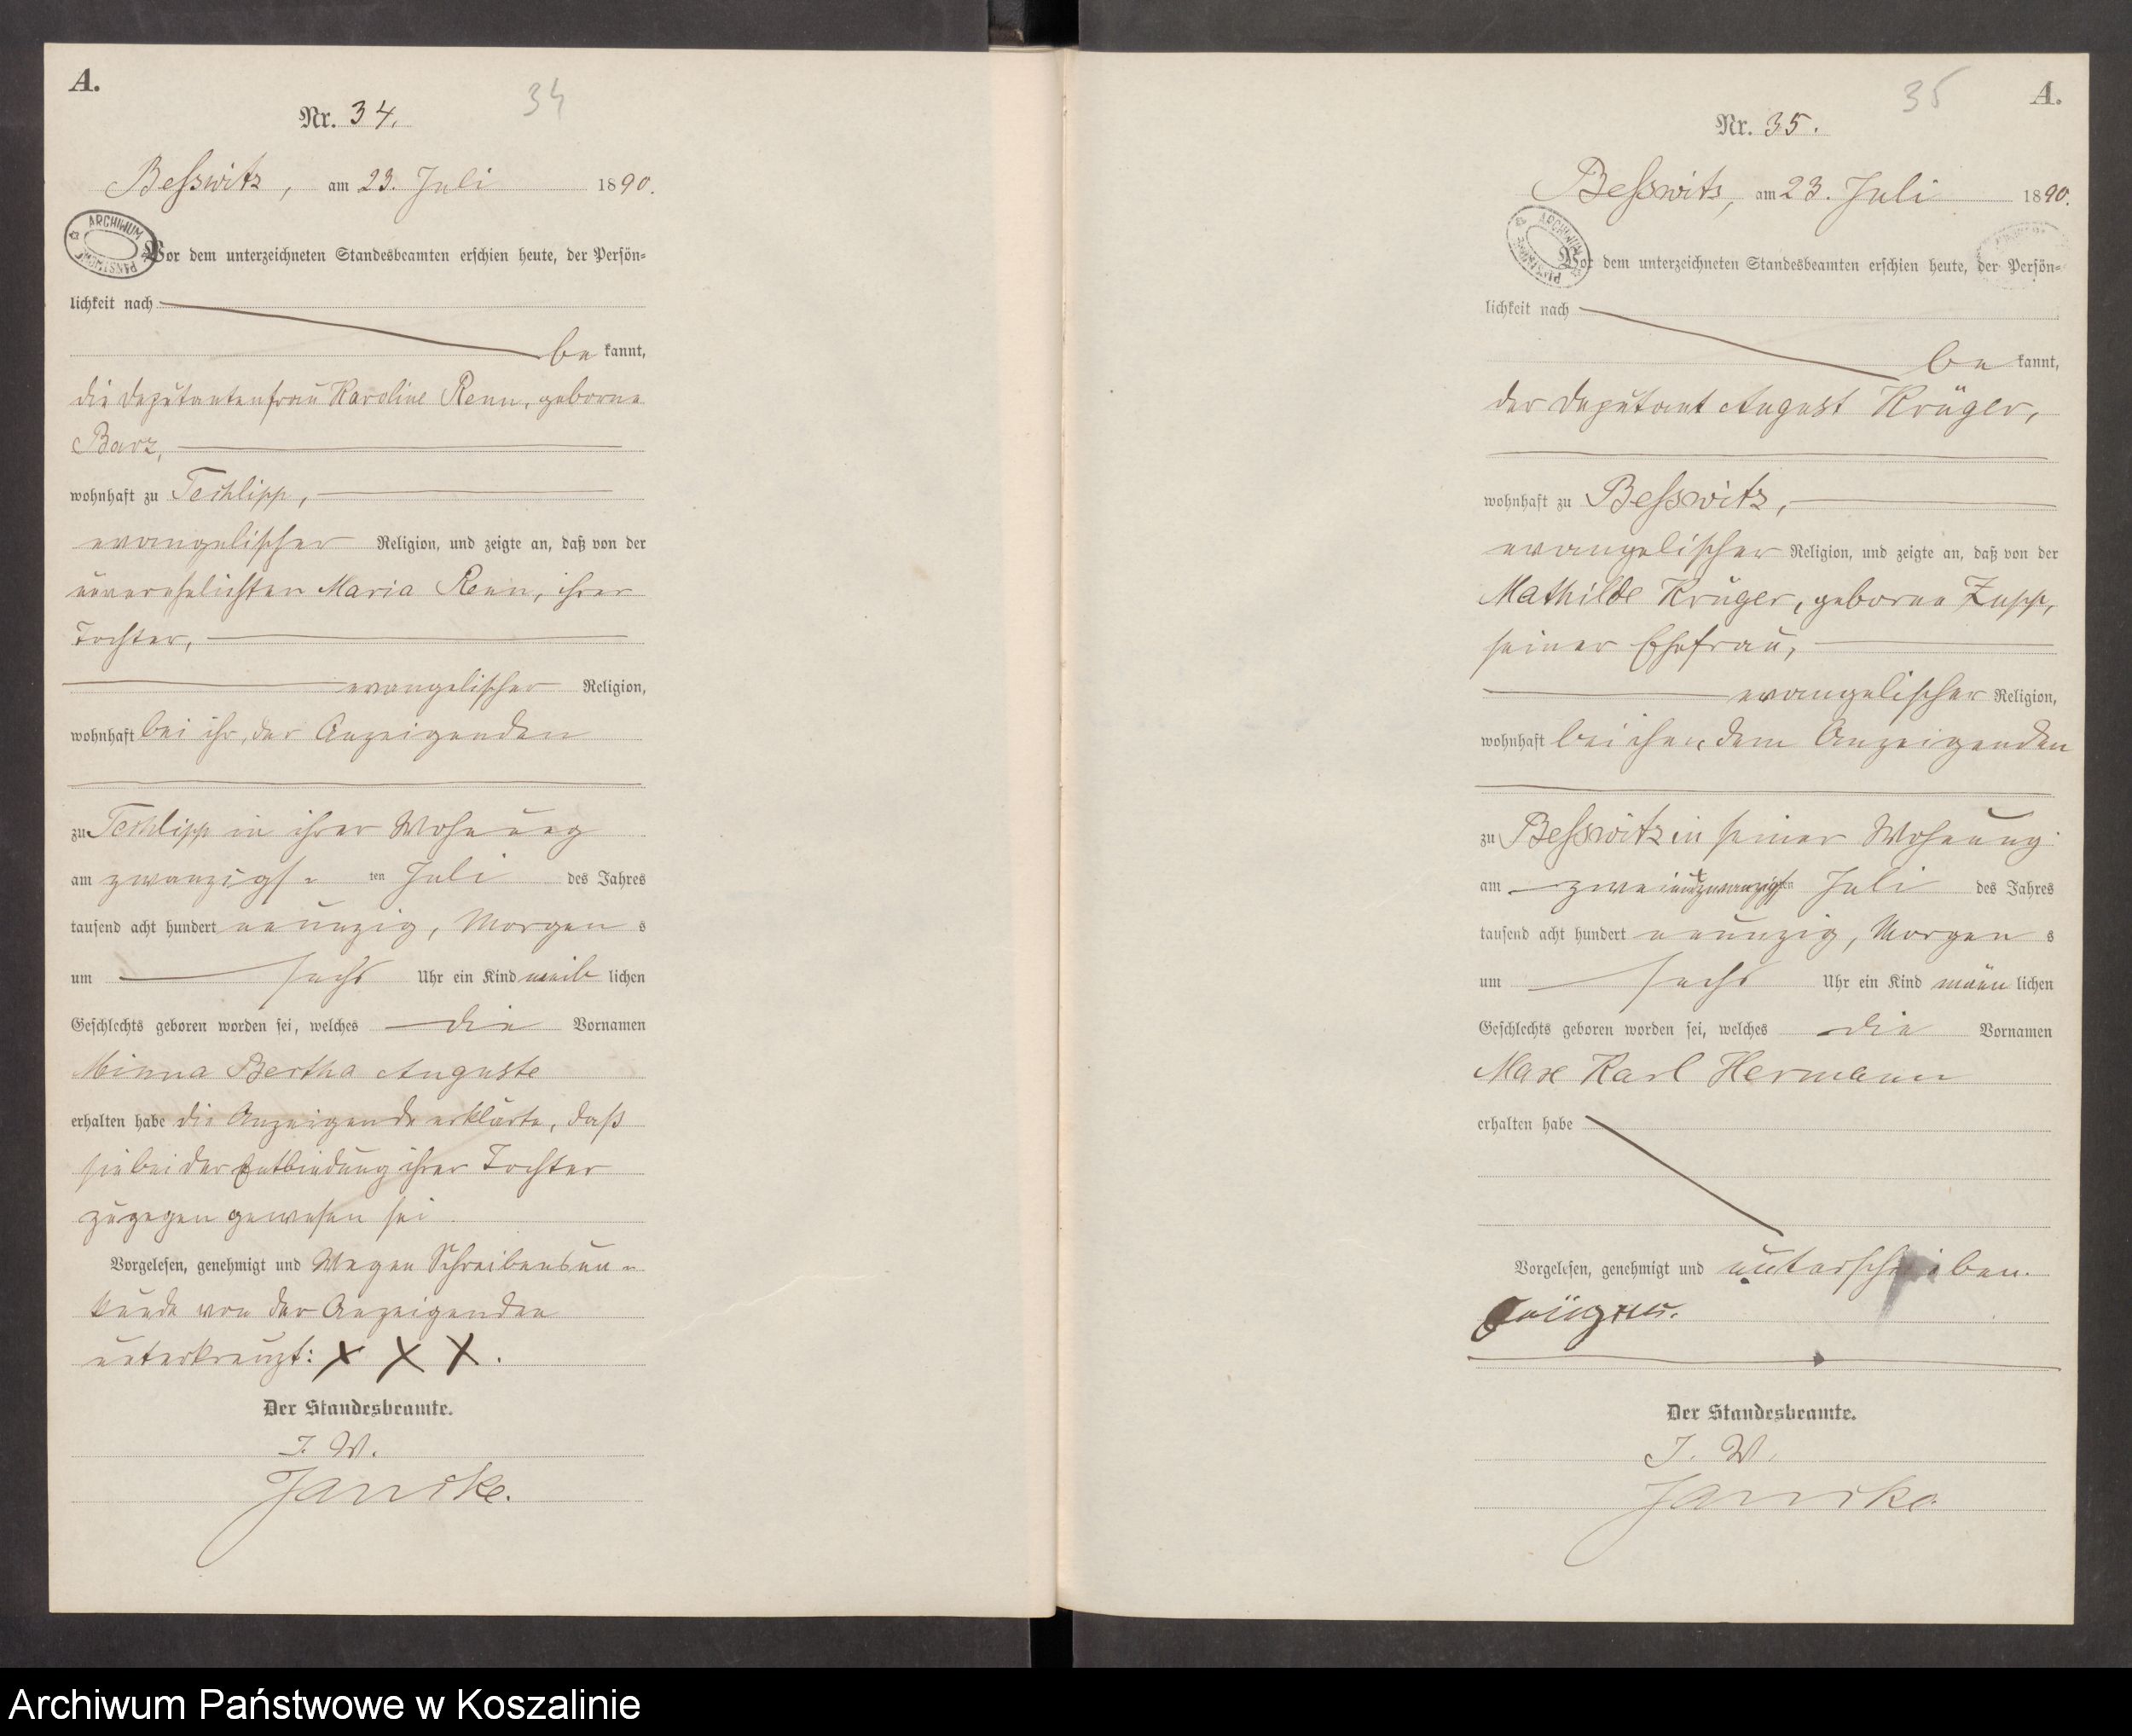 A.
34
Nr. 34.
Besswitz, am 23. Juli 1890.
ARCHIWUM PAŃSTWOWE
Vor dem unterzeichneten Standesbeamten erschien heute, der Persön=
lichkeit nach
be kannt,
die Deputantenfrau Karoline Renn, geborne
Barz,
wohnhaft zu Techlipp,
evangelischer Religion, und zeigte an, daß von der
unverehelichten Maria Renn, ihrer
Tochter,
evangelischer Religion,
wohnhaft bei ihr, der Anzeigenden
zu Techlipp in ihrer Wohnung
am zwanzigs- ten Juli des Jahres
tausend acht hundert neunzig, Morgen s
um sechs Uhr ein Kind weib lichen
Geschlechts geboren worden sei, welches die Vornamen
Minna Bertha Auguste
erhalten habe die Anzeigende erklärte, daß
sie bei der Entbindung ihrer Tochter
zugegen gewesen sei.
Vorgelesen, genehmigt und Wegen Schreibensun-
kunde von der Anzeigenden
unterkreuzt: X X X.
Der Standesbeamte.
I. W.
Jancke.
35
A.
Nr. 35.
Besswitz, am 23. Juli 1890.
Vor dem unterzeichneten Standesbeamten erschien heute, der Persön=
lichkeit nach
be kannt,
der Deputant August Krüger,
wohnhaft zu Besswitz,
evangelischer Religion, und zeigte an, daß von der
Mathilde Krüger, geborne Zupp,
seiner Ehefrau,
evangelischer Religion,
wohnhaft bei ihm, dem Anzeigenden
zu Besswitz in seiner Wohnung
am zweiundzwanzigsten Juli des Jahres
tausend acht hundert neunzig, Morgen s
um sechs Uhr ein Kind männ lichen
Geschlechts geboren worden sei, welches die Vornamen
Max Karl Hermann
erhalten habe
Vorgelesen, genehmigt und unterschrieben.
Der Standesbeamte.
I. W.
Jancke
Archiwum Państwowe w Koszalinie